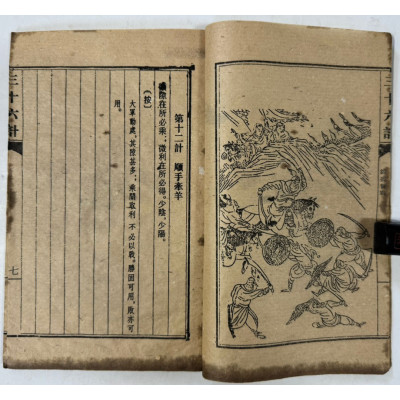 三十六計
第十二計　順手牽羊
微隙在所必乘；微利在所必得。少陰，少陽。
（按）
大軍動處，其隙甚多；乘間取利，不必以戰。勝固可用，敗亦可
用。
三十六計
七